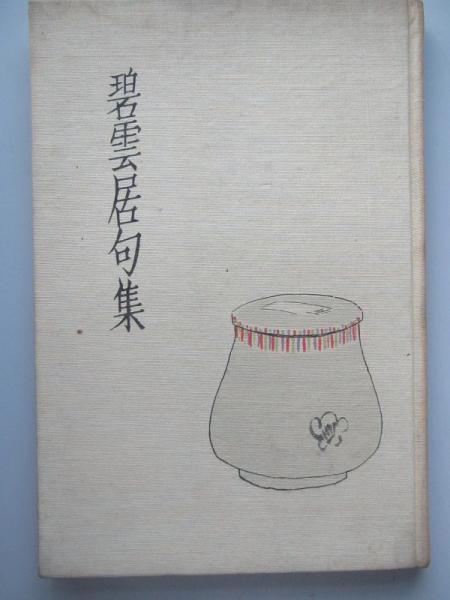 碧雲居句集